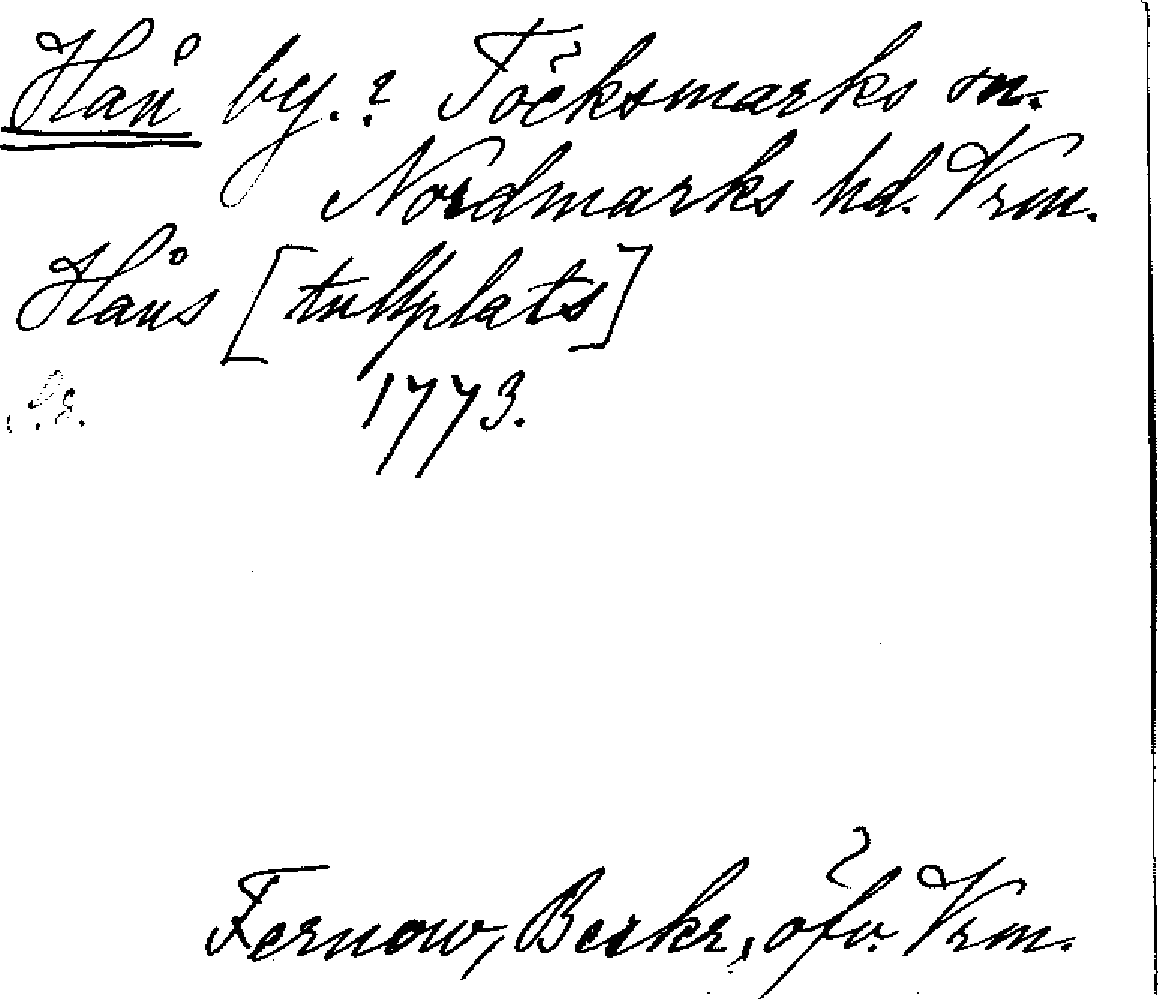 Hån by.? Töcksmarks sn.
Nordmarks hd. Vrm.
Håns [tullplats]
1773.
Fernow, Beskr, öfv. Vrm.